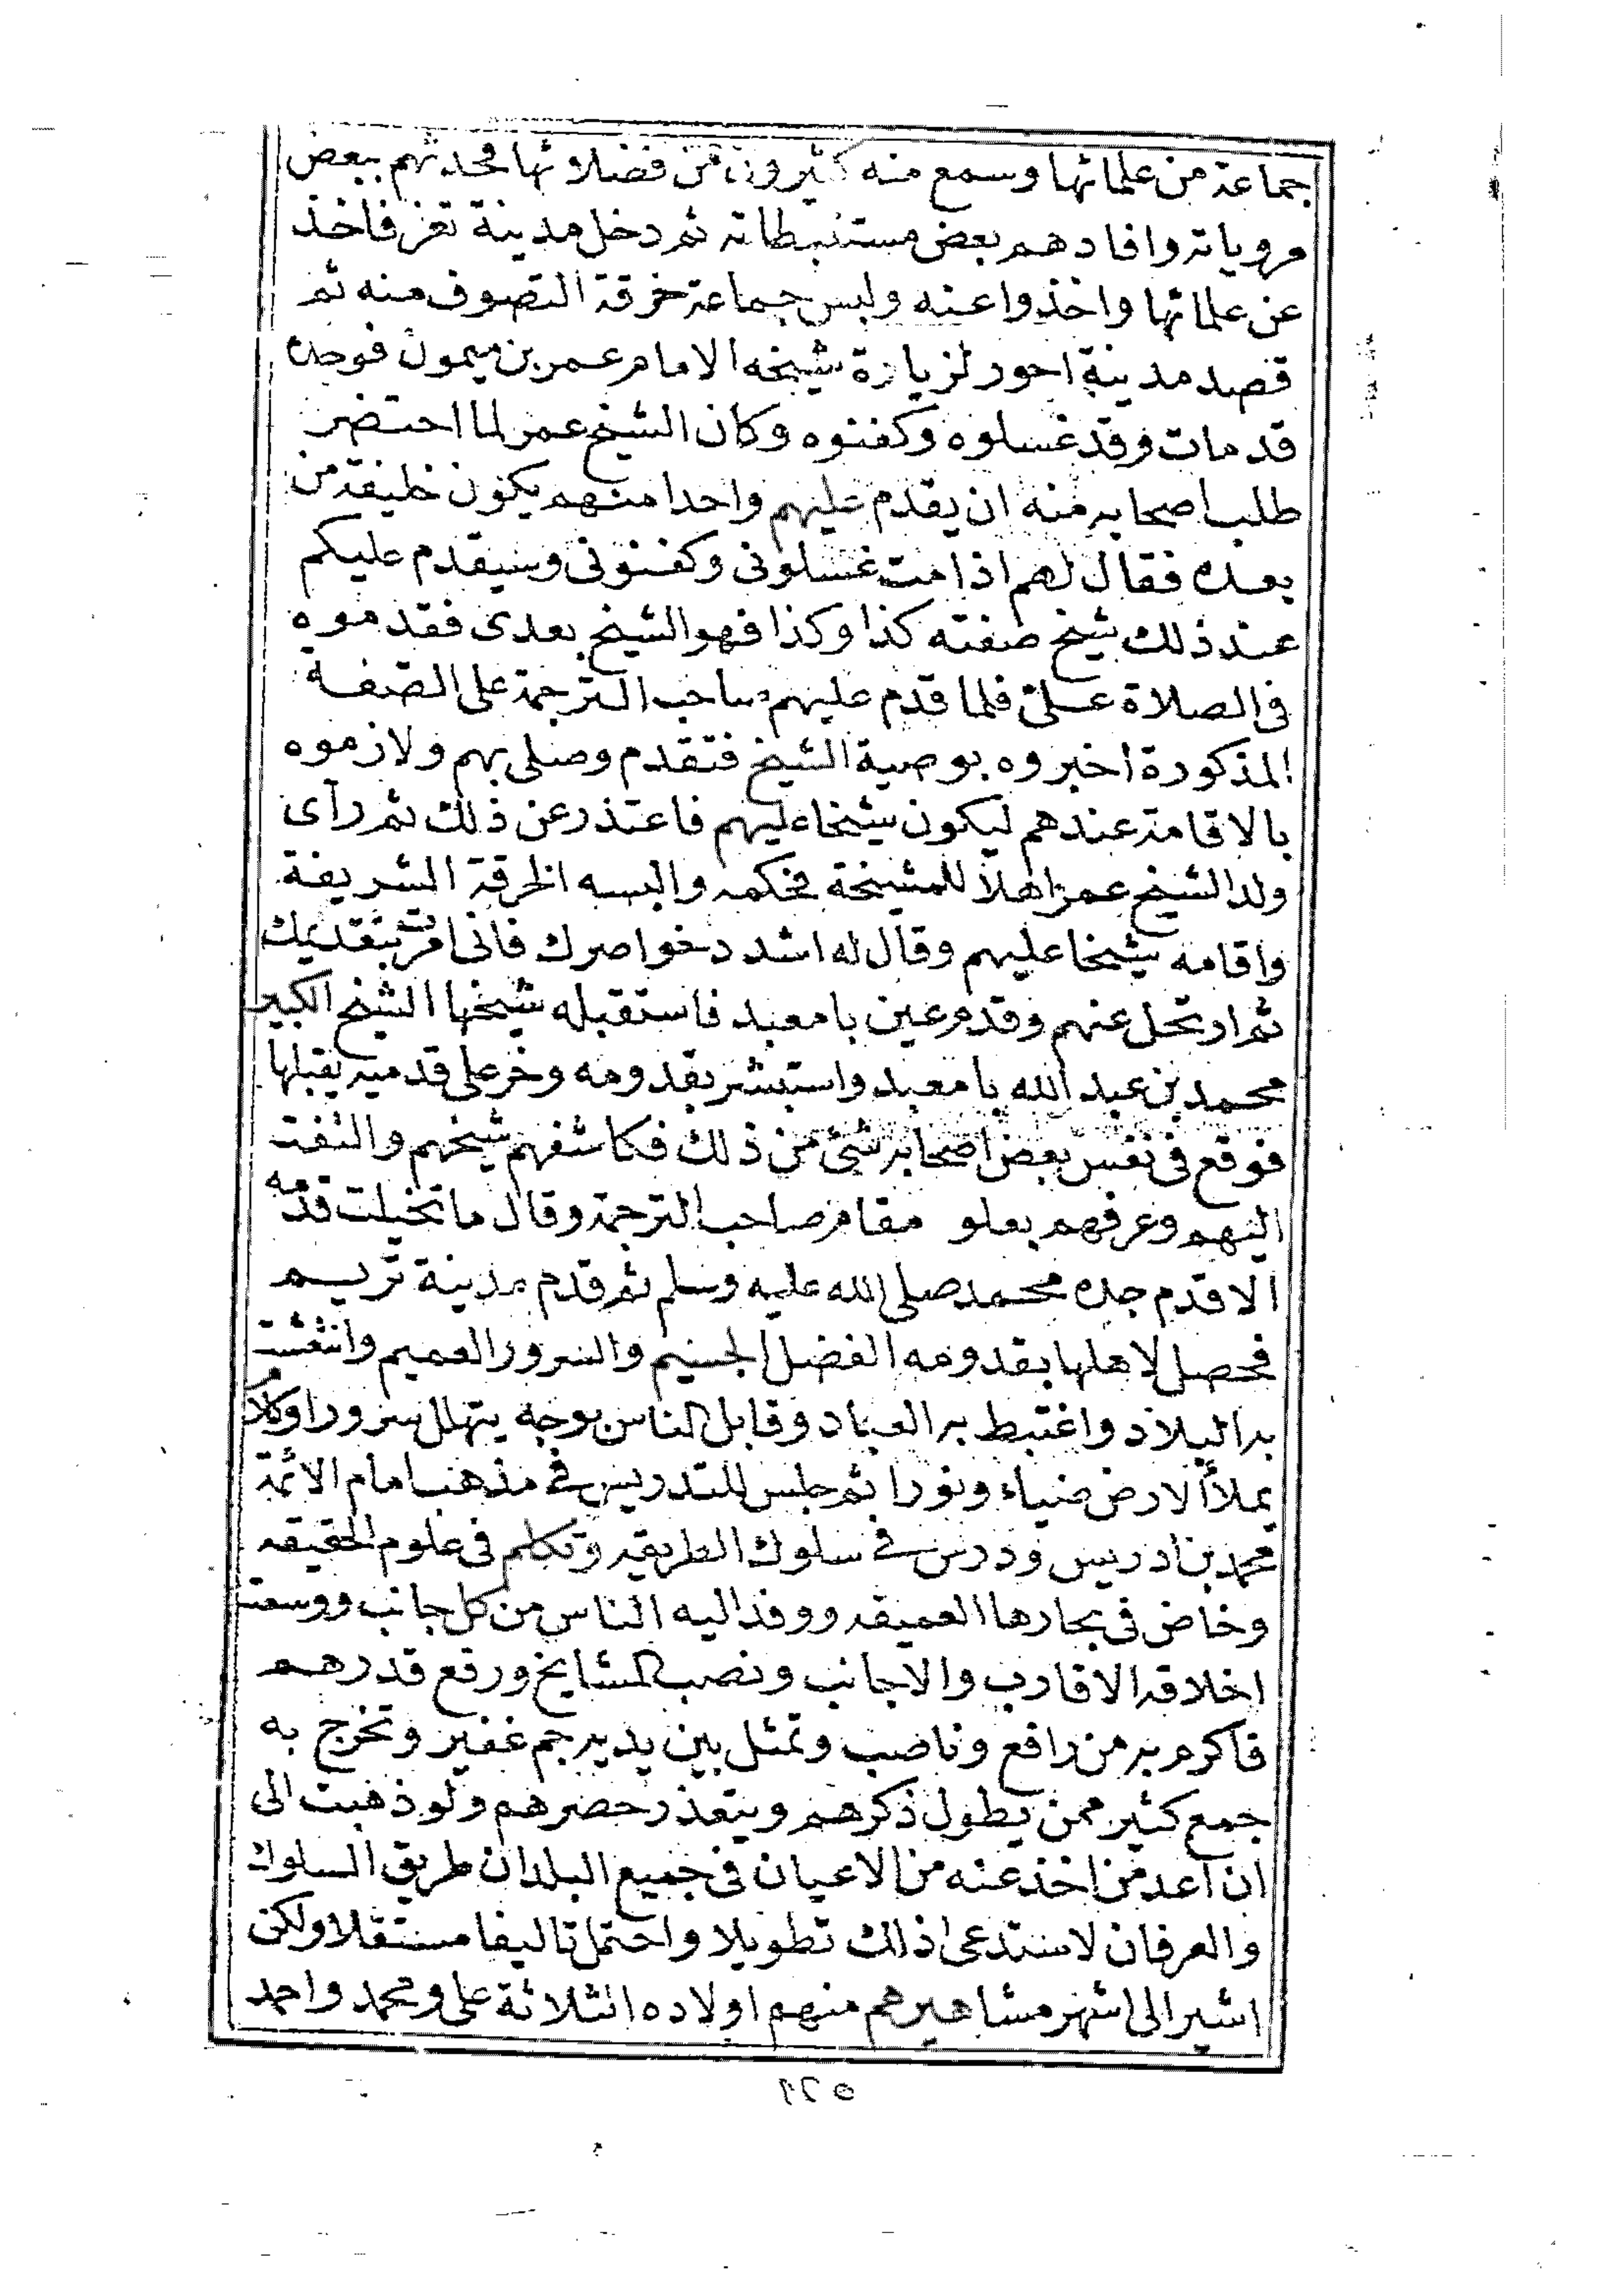 جماعة من علمائها وسمع منه كثيرون من فضلائها فحدثهم ببعض
مروياته وافادهم بعض مستنبطاته ثم دخل مدينة تعز فاخذ
عن علمائها واخذوا عنه ولبس جماعة خرقة التصوف منه ثم
قصد مدينة احور لزيارة شيخه الامام عمر بن ميمون فوجده
قد مات وقد غسلوه وكفنوه وكان الشيخ عمر لما احتضر
طلب اصحابه منه ان يقدم عليهم واحدا منهم يكون خليفة من
بعده فقال لهم اذا مت غسلونى وكفنونى وسيقدم عليكم
عند ذلك شيخ صفته كذا وكذا فهو الشيخ بعدى فقدموه
فى الصلاة علىّ فلما قدم عليهم صاحب الترجمة على الصفة
المذكورة اخبروه بوصية الشيخ فتقدم وصلى بهم ولازموه
بالاقامة عندهم ليكون شيخا عليهم فاعتذر عن ذلك ثم رآى
ولد الشيخ عمر اهلا للمشيخة فحكمه والبسه الخرقة الشريفة
واقامه شيخا عليهم وقال له اشدد خواصرك فانى امرت بتقديمك
ثم ارتحل عنهم وقدم عين بامعبد فاستقبله شيخها الشيخ الكبير
محمد بن عبد الله بامعبد واستبشر بقدومه وخر على قدميه يقبلها
فوقع فى نفس بعض اصحابه شئ من ذلك فكاشفهم شيخهم والتفت
اليهم وعرفهم بعلو مقام صاحب الترجمة وقال ما تخيلت قدمه
الا قدم جده محمد صلى الله عليه وسلم ثم قدم مدينة تريم
فحصل لاهلها بقدومه الفضل الجسيم والسرور العميم وانتعشت
به البلاد واغتبط به العباد وقابل الناس بوجه يتهلل سرورا وكلام
يملأ الارض ضياء ونورا ثم جلس للتدريس فى مذهب امام الائمة
محمد بن ادريس ودرس فى سلوك الطريقه وتكلم فى علوم الحقيقه
وخاض فى بحارها العميقه ووفد اليه الناس من كل جانب ووسعت
اخلاقه الاقارب والاجانب ونصب المشايخ ورفع قدرهم
فاكرم به من رافع وناصب وتمثل بين يديه جم غفير وتخرج به
جمع كثير ممن يطول ذكرهم ويتعذر حصرهم ولو ذهبت الى
ان اعد من اخذ عنه من الاعيان فى جميع البلدان طريق السلوك
والعرفان لاستدعى ذلك تطويلا واحتمل تاليفا مستقلا ولكن
اشير الى اشهر مشاهيرهم منهم اولاده الثلاثة على ومحمد واحمد